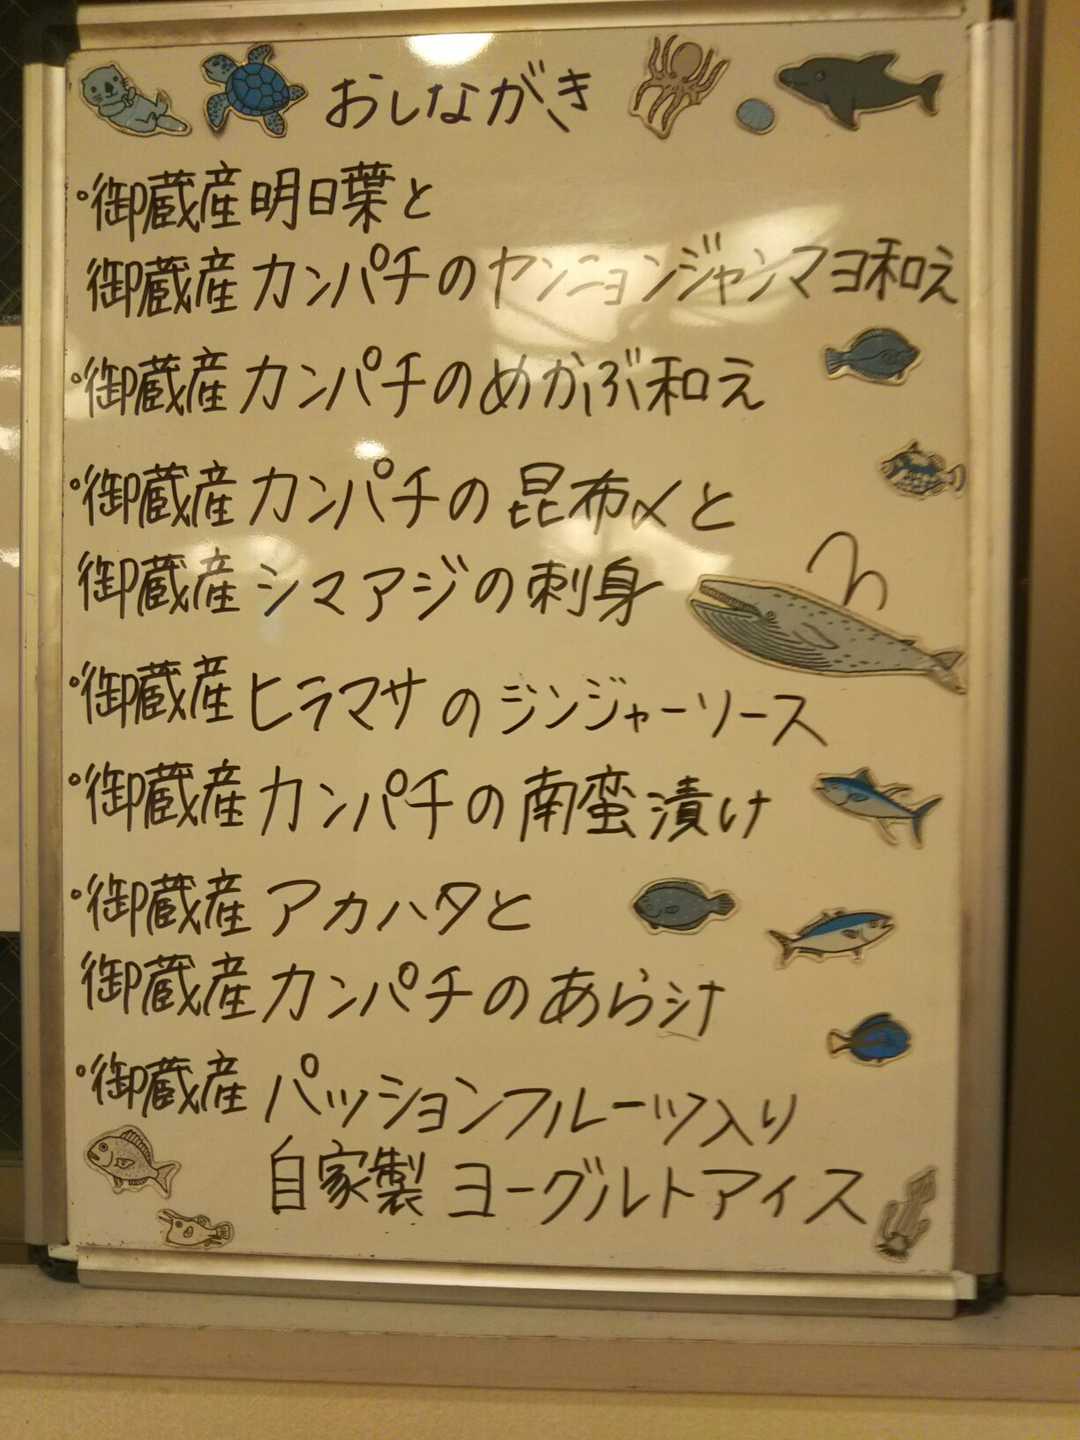 おしながき
・御蔵産明日葉と
御蔵産カンパチのヤンニョンジャンマヨ和え
・御蔵産カンパチのめかぶ和え
・御蔵産カンパチの昆布〆と
御蔵産シマアジの刺身
・御蔵産ヒラマサのジンジャーソース
・御蔵産カンパチの南蛮漬け
・御蔵産アカハタと
御蔵産カンパチのあら汁
・御蔵産パッションフルーツ入り
自家製ヨーグルトアイス